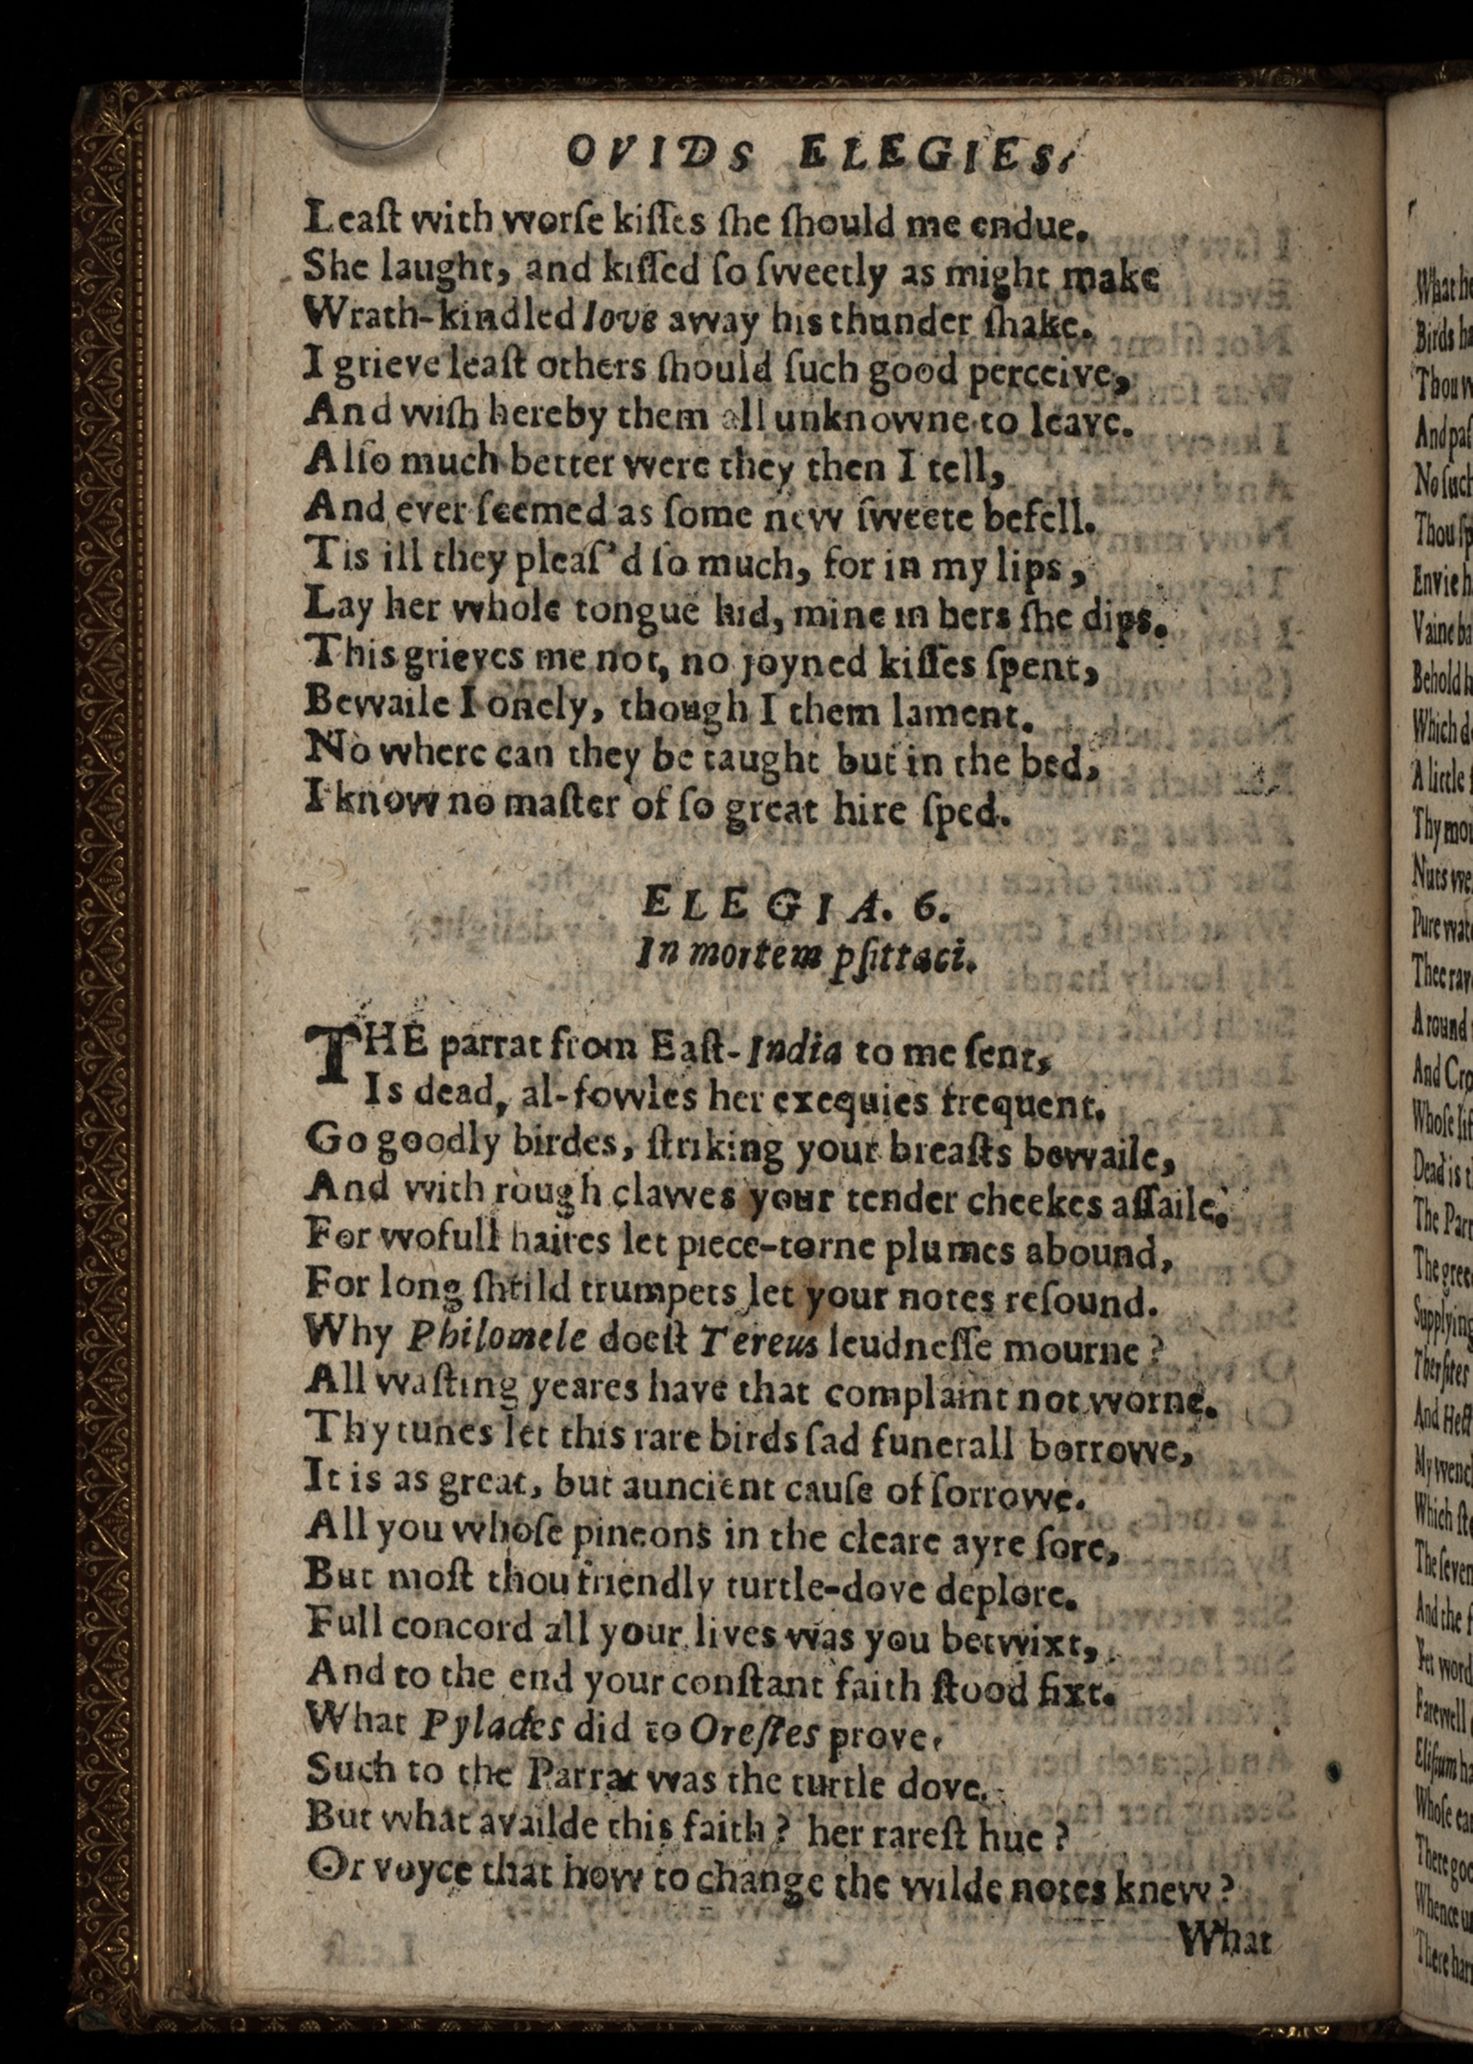 OVIDS ELEGIES.
Leaſt with worſe kiſſes ſhe ſhould me endue.
She laught, and kiſſed ſo ſweetly as might make
Wrath-kindled Iove away his thunder ſhake.
I grieve leaſt others ſhould ſuch good perceive,
And wiſh hereby them all unknowne to leave.
Alſo much better were they then I tell,
And ever ſeemed as ſome new ſweete befell.
Tis ill they pleaſ'd ſo much, for in my lips,
Lay her whole tongue hid, mine in hers ſhe dips.
This grieves me not, no joyned kiſſes ſpent,
Bewaile I onely, though I them lament.
No where can they be taught but in the bed,
I know no maſter of ſo great hire ſped.
ELEGIA. 6.
In mortem pſittaci.
THE parrat from Eaſt-India to me ſent,
Is dead, al-fowles her exequies frequent.
Go goodly birdes, ſtriking your breaſts bewaile,
And with rough clawes your tender cheekes aſſaile.
For wofull haires let piece-torne plumes abound,
For long ſhrild trumpets let your notes reſound.
Why Philomele doeſt Tereus leudneſſe mourne?
All waſting yeares have that complaint not worne.
Thy tunes let this rare birds ſad funerall borrowe,
It is as great, but auncient cauſe of ſorrowe.
All you whoſe pineons in the cleare ayre ſore,
But moſt thou friendly turtle-dove deplore.
Full concord all your lives was you betwixt,
And to the end your conſtant faith ſtood fixt.
What Pylades did to Oreſtes prove,
Such to the Parrat was the turtle dove.
But what availde this faith? her rareſt hue?
Or voyce that how to change the wilde notes knew?
What